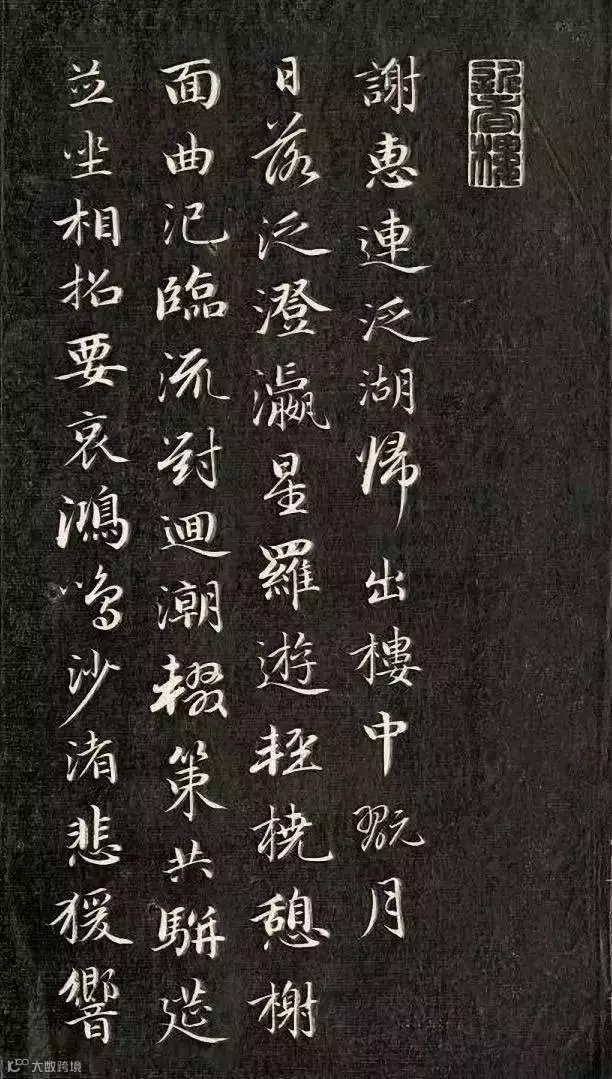 謝惠連泛湖歸出樓中翫月
日落泛澄瀛星羅遊輕橈憩榭
面曲汜臨流對迴潮輟策共駢筵
並坐相招要哀鴻鳴沙渚悲猨響
大数跨境